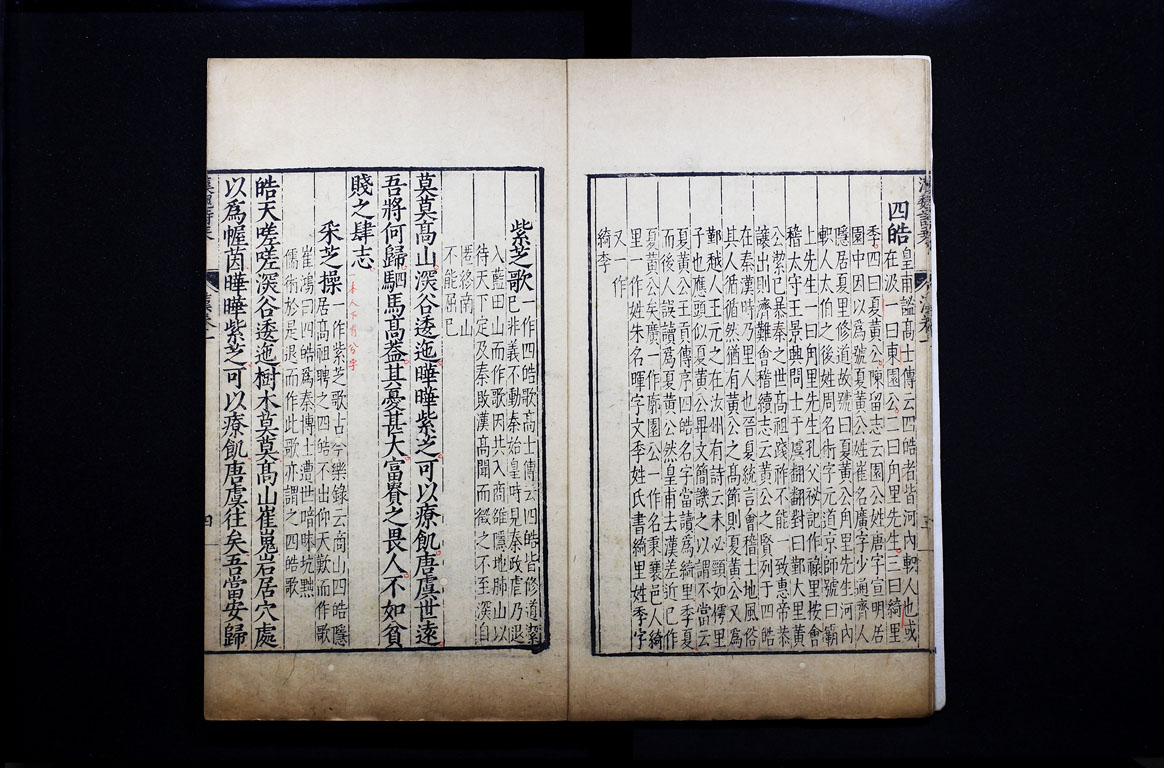 四皓
皇甫謐高士傳云四皓者皆河內軹人也或
在汲一曰東園公二曰甪里先生三曰綺里
季四曰夏黃公陳留志云園公姓唐字宣明居
園中因以爲號夏黃公姓崔名廣字少通齊人
隱居夏里修道故號曰夏黃公甪里先生河內
軹人太伯之後姓周名術字元道京師號曰霸
上先生一曰甪里先生孔父祕記作祿里按會
稽太守王景興問士于虞翻翻對曰鄞大里黃
公潔已暴秦之世高祖踐祚不能一致惠帝恭
讓出則濟難會稽續志云黃公之賢列于四皓
在秦漢時乃里人也晉夏統言會稽土地風俗
其人循循然猶有黃公之高節則夏黃公又爲
鄞越人王元之在汝州有詩云未必頸如樗里
子也應頭似夏黃公畢文簡譏之以謂不當云
夏黃公王貢傳序四皓名字當讀爲綺里季夏
而後人誤讀爲夏黃公然皇甫去漢差近已作
夏黃公矣廣一作廓園公一作名秉襄邑人綺
里一作姓朱名暉字文季姓氏書綺里姓季字
又一作
綺季
紫芝歌
一作四皓歌高士傳云四皓皆修道潔
已非義不動秦始皇時見秦政虐乃退
入藍田山而作歌因共入商雒隱地肺山以
待天下定及秦敗漢高聞而徵之不至深自
匿終南山
不能屈已
莫莫高山深谷逶迤曄曄紫芝可以療飢唐虞世遠
吾將何歸駟馬高蓋其憂甚大富貴之畏人不如貧
賤之肆志
一本人下有兮字
采芝操
一作紫芝歌古今樂錄云商山四皓隱
居高祖聘之四皓不出仰天歎而作歌
崔鴻曰四皓爲秦博士遭世暗昧坑黜
儒術於是退而作此歌亦謂之四皓歌
皓天嗟嗟深谷逶迤樹木莫莫高山崔嵬岩居穴處
以爲幄茵曄曄紫芝可以療飢唐虞往矣吾當安歸
四